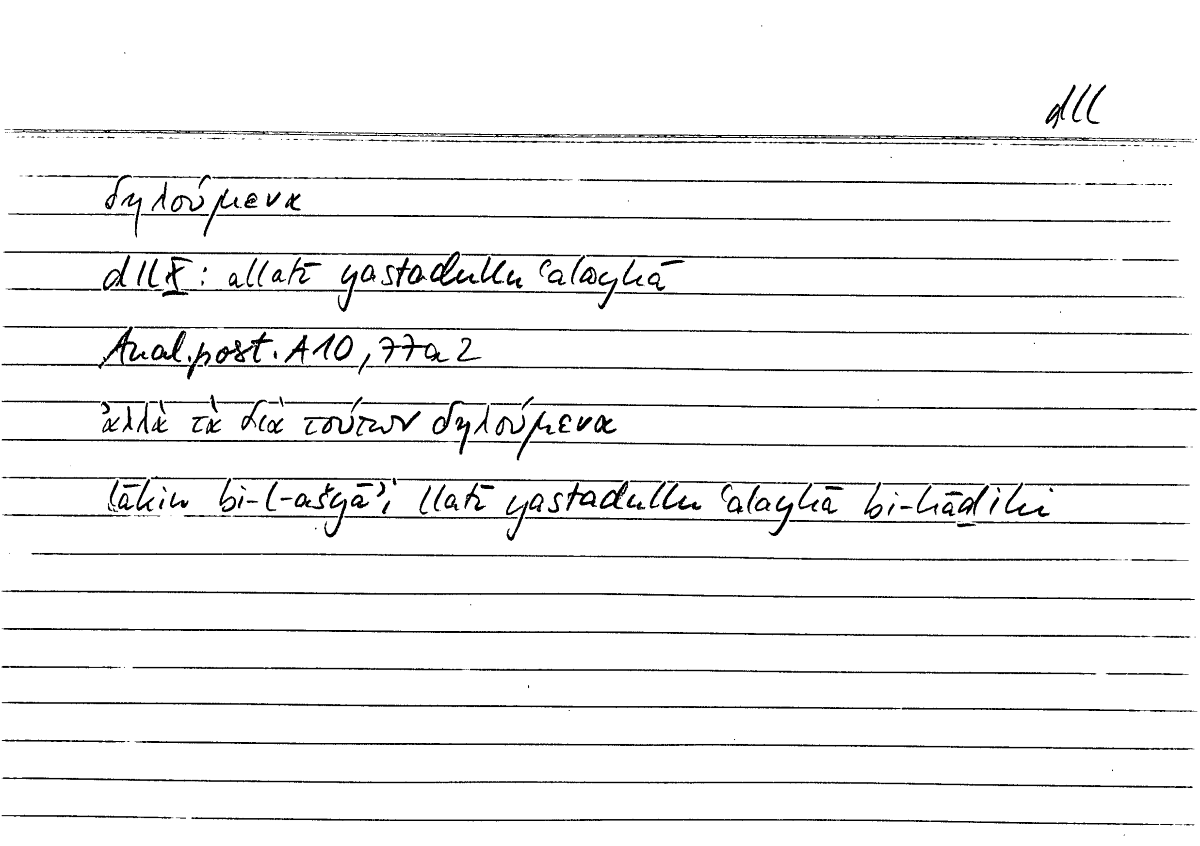 dll
δηλούμενα
dll X : allatī yastadullu ʿalayhā
Anal. post. A 10, 77a 2
ἀλλὰ τὰ διὰ τούτων δηλούμενα
lākin bi-l-ašyāʾi llatī yastadullu ʿalayhā bi-hāḏihi